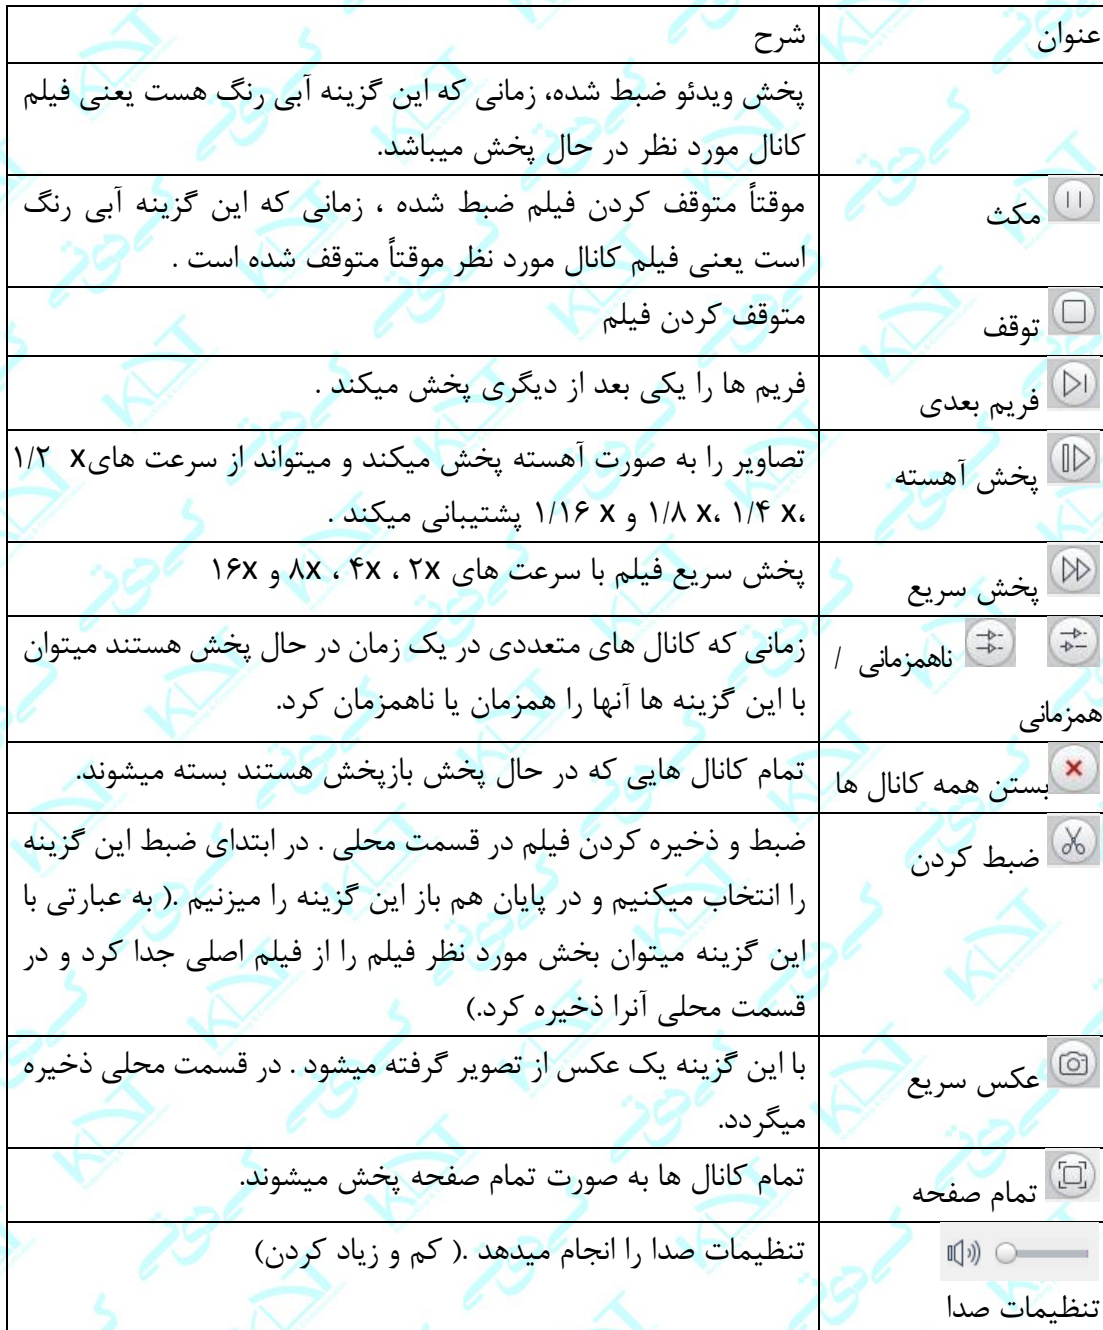 عنوان
شرح
پخش ویدئو ضبط شده، زمانی که این گزینه آبی رنگ هست یعنی فیلم
کانال مورد نظر در حال پخش میباشد.
مکث
موقتاً متوقف کردن فیلم ضبط شده ، زمانی که این گزینه آبی رنگ
است یعنی فیلم کانال مورد نظر موقتاً متوقف شده است .
توقف
متوقف کردن فیلم
فریم بعدی
فریم ها را یکی بعد از دیگری پخش میکند .
پخش آهسته
تصاویر را به صورت آهسته پخش میکند و میتواند از سرعت هایx ۱/۲
،x ۱/۴ ،x ۱/۸ و x ۱/۱۶ پشتیبانی میکند .
پخش سریع
پخش سریع فیلم با سرعت های ۲x ، ۴x ، ۸x و ۱۶x
ناهمزمانی /
همزمانی
زمانی که کانال های متعددی در یک زمان در حال پخش هستند میتوان
با این گزینه ها آنها را همزمان یا ناهمزمان کرد.
بستن همه کانال ها
تمام کانال هایی که در حال پخش بازپخش هستند بسته میشوند.
ضبط کردن
ضبط و ذخیره کردن فیلم در قسمت محلی . در ابتدای ضبط این گزینه
را انتخاب میکنیم و در پایان هم باز این گزینه را میزنیم .( به عبارتی با
این گزینه میتوان بخش مورد نظر فیلم را از فیلم اصلی جدا کرد و در
قسمت محلی آنرا ذخیره کرد.)
عکس سریع
با این گزینه یک عکس از تصویر گرفته میشود . در قسمت محلی ذخیره
میگردد.
تمام صفحه
تمام کانال ها به صورت تمام صفحه پخش میشوند.
تنظیمات صدا
تنظیمات صدا را انجام میدهد .( کم و زیاد کردن)